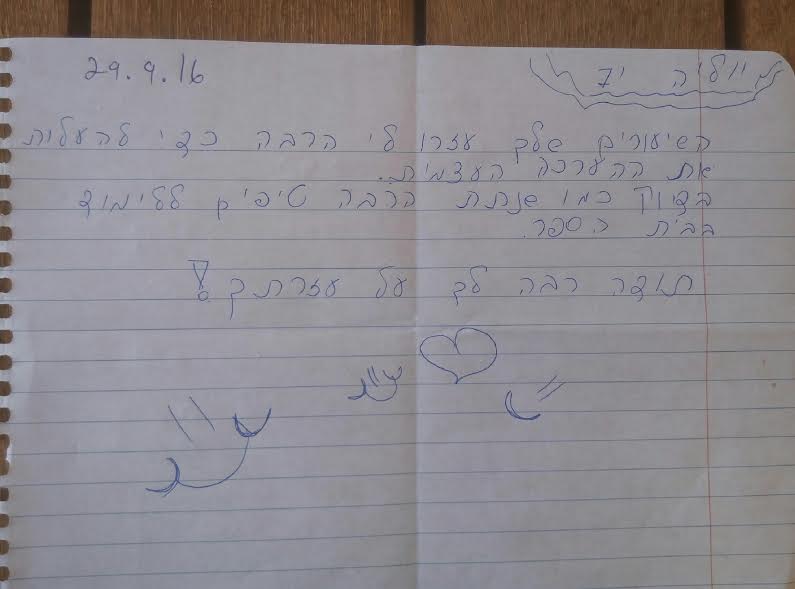 29.9.16
יוליה יד
השיעורים שלך עזרו לי הרבה כדי להעלות
את ההערכה העצמית.
בדיוק כמו שנתת הרבה טיפים ללימוד
בבית הספר.
תודה רבה לך על עזרתך!